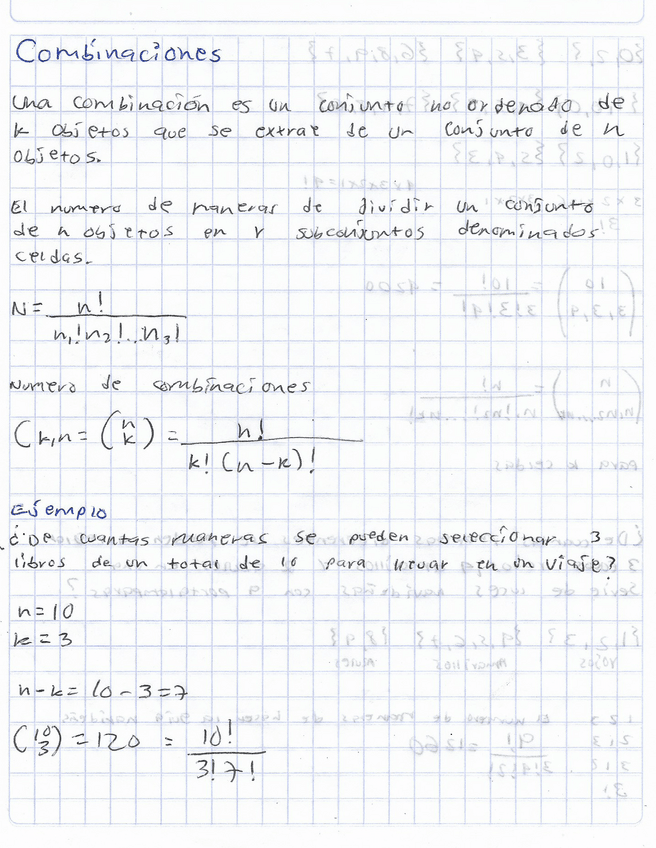 Combinaciones
Una combinación es un conjunto no ordenado de
k objetos que se extrae de un conjunto de n
objetos.
El numero de maneras de dividir un conjunto
de n objetos en r subconjuntos denominados
celdas.
N = n! / n₁! n₂! ... n₃!
Numero de combinaciones
Ck,n = (n k) = n! / k! (n-k)!
Ejemplo
¿De cuantas maneras se pueden seleccionar 3
libros de un total de 10 para llevar en un viaje?
n = 10
k = 3
n-k = 10 - 3 = 7
(10 3) = 120 = 10! / 3! 7!